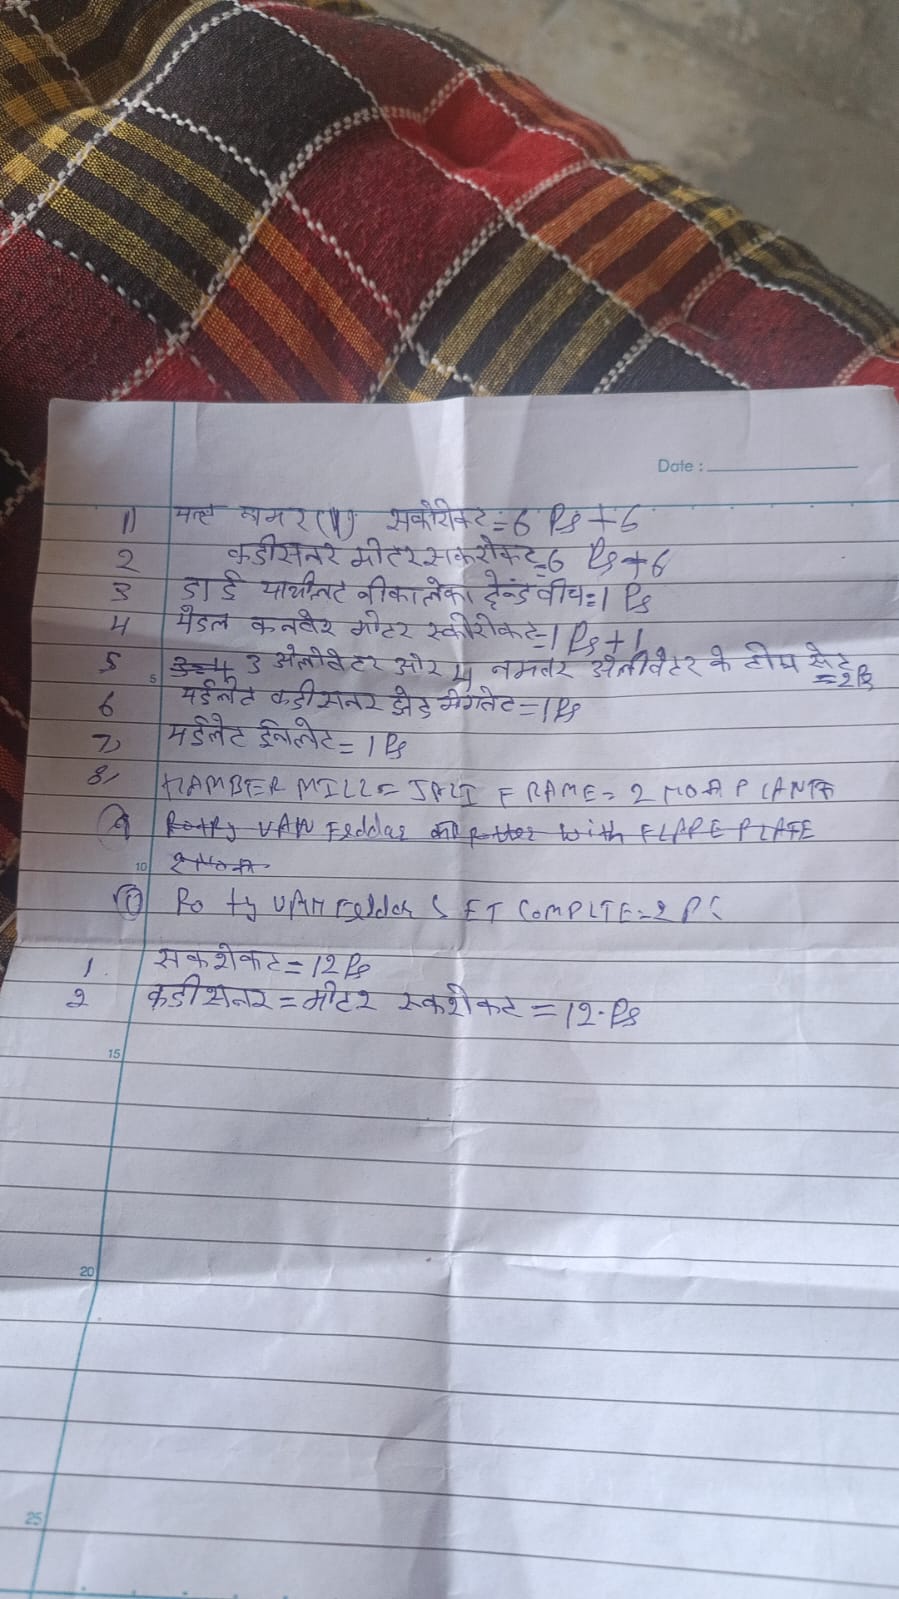 Date :
1) नमर (4) सकोरोकट = 6 Ps + 6
2 कडीसनर मोटर सकरोकट = 6 Ps + 6
3 डाई पायीलट नीकालेका हेन्ड वीच = 1 Ps
4 पेडल कनवेर मोटर स्कीरोकट = 1 Ps + 1
5 3 = 4 3 अेलीवेटर ओर 4 नमबर अेलीवेटर के टोप सेट = 2 Ps
6 पईलेट कडीसनर झेड मेगनेट = 1 Ps
7) पईलेट ईनलेट = 1 Ps
8) HAMBER MILL = JALI FRAME = 2 PLANTE
9 Rotry VAN Feddar with FLAPE PLATE
10 Ro ty VAN Feddar SET COMPLTE = 2 PC
1. सकरोकट = 12 Ps
2 कडीसनर = मोटर स्करोकट = 12 Ps
5
10
15
20
25